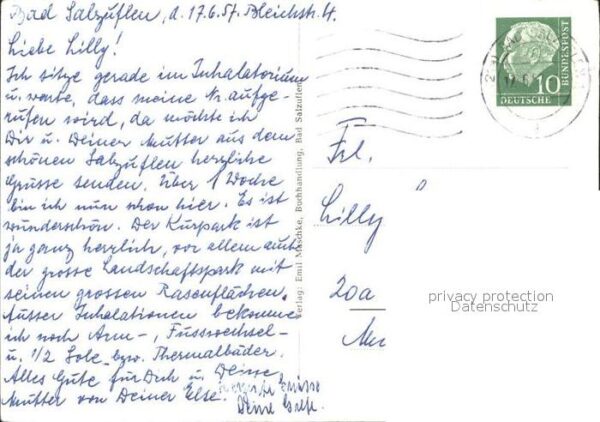 Bad Salzuflen, d. 17.6.57. Bleichstr. 4.
Liebe Lilly!
Ich sitze gerade im Inhalatorium
u. warte, dass meine Nr. aufge-
rufen wird, da möchte ich
Dir u. Deiner Mutter aus dem
schönen Salzuflen herzliche
Grüsse senden. Über 1 Woche
bin ich nun schon hier. Es ist
wunderschön. Der Kurpark ist
ja ganz herrlich, vor allem auch
der grosse Landschaftspark mit
seinen grossen Rasenflächen.
Ausser Inhalationen bekomme
ich noch Arm-, Fusswechsel-
u. 1/2 Sole- bzw. Thermalbäder.
Alles Gute für Dich u. Deine
Mutter von Deiner Else.
Grüsse
Deine
Verlag: Emil Maschke, Buchhandlung, Bad Salzuflen
10
DEUTSCHE
BUNDESPOST
Frl.
Lilly
20a
privacy protection
Datenschutz